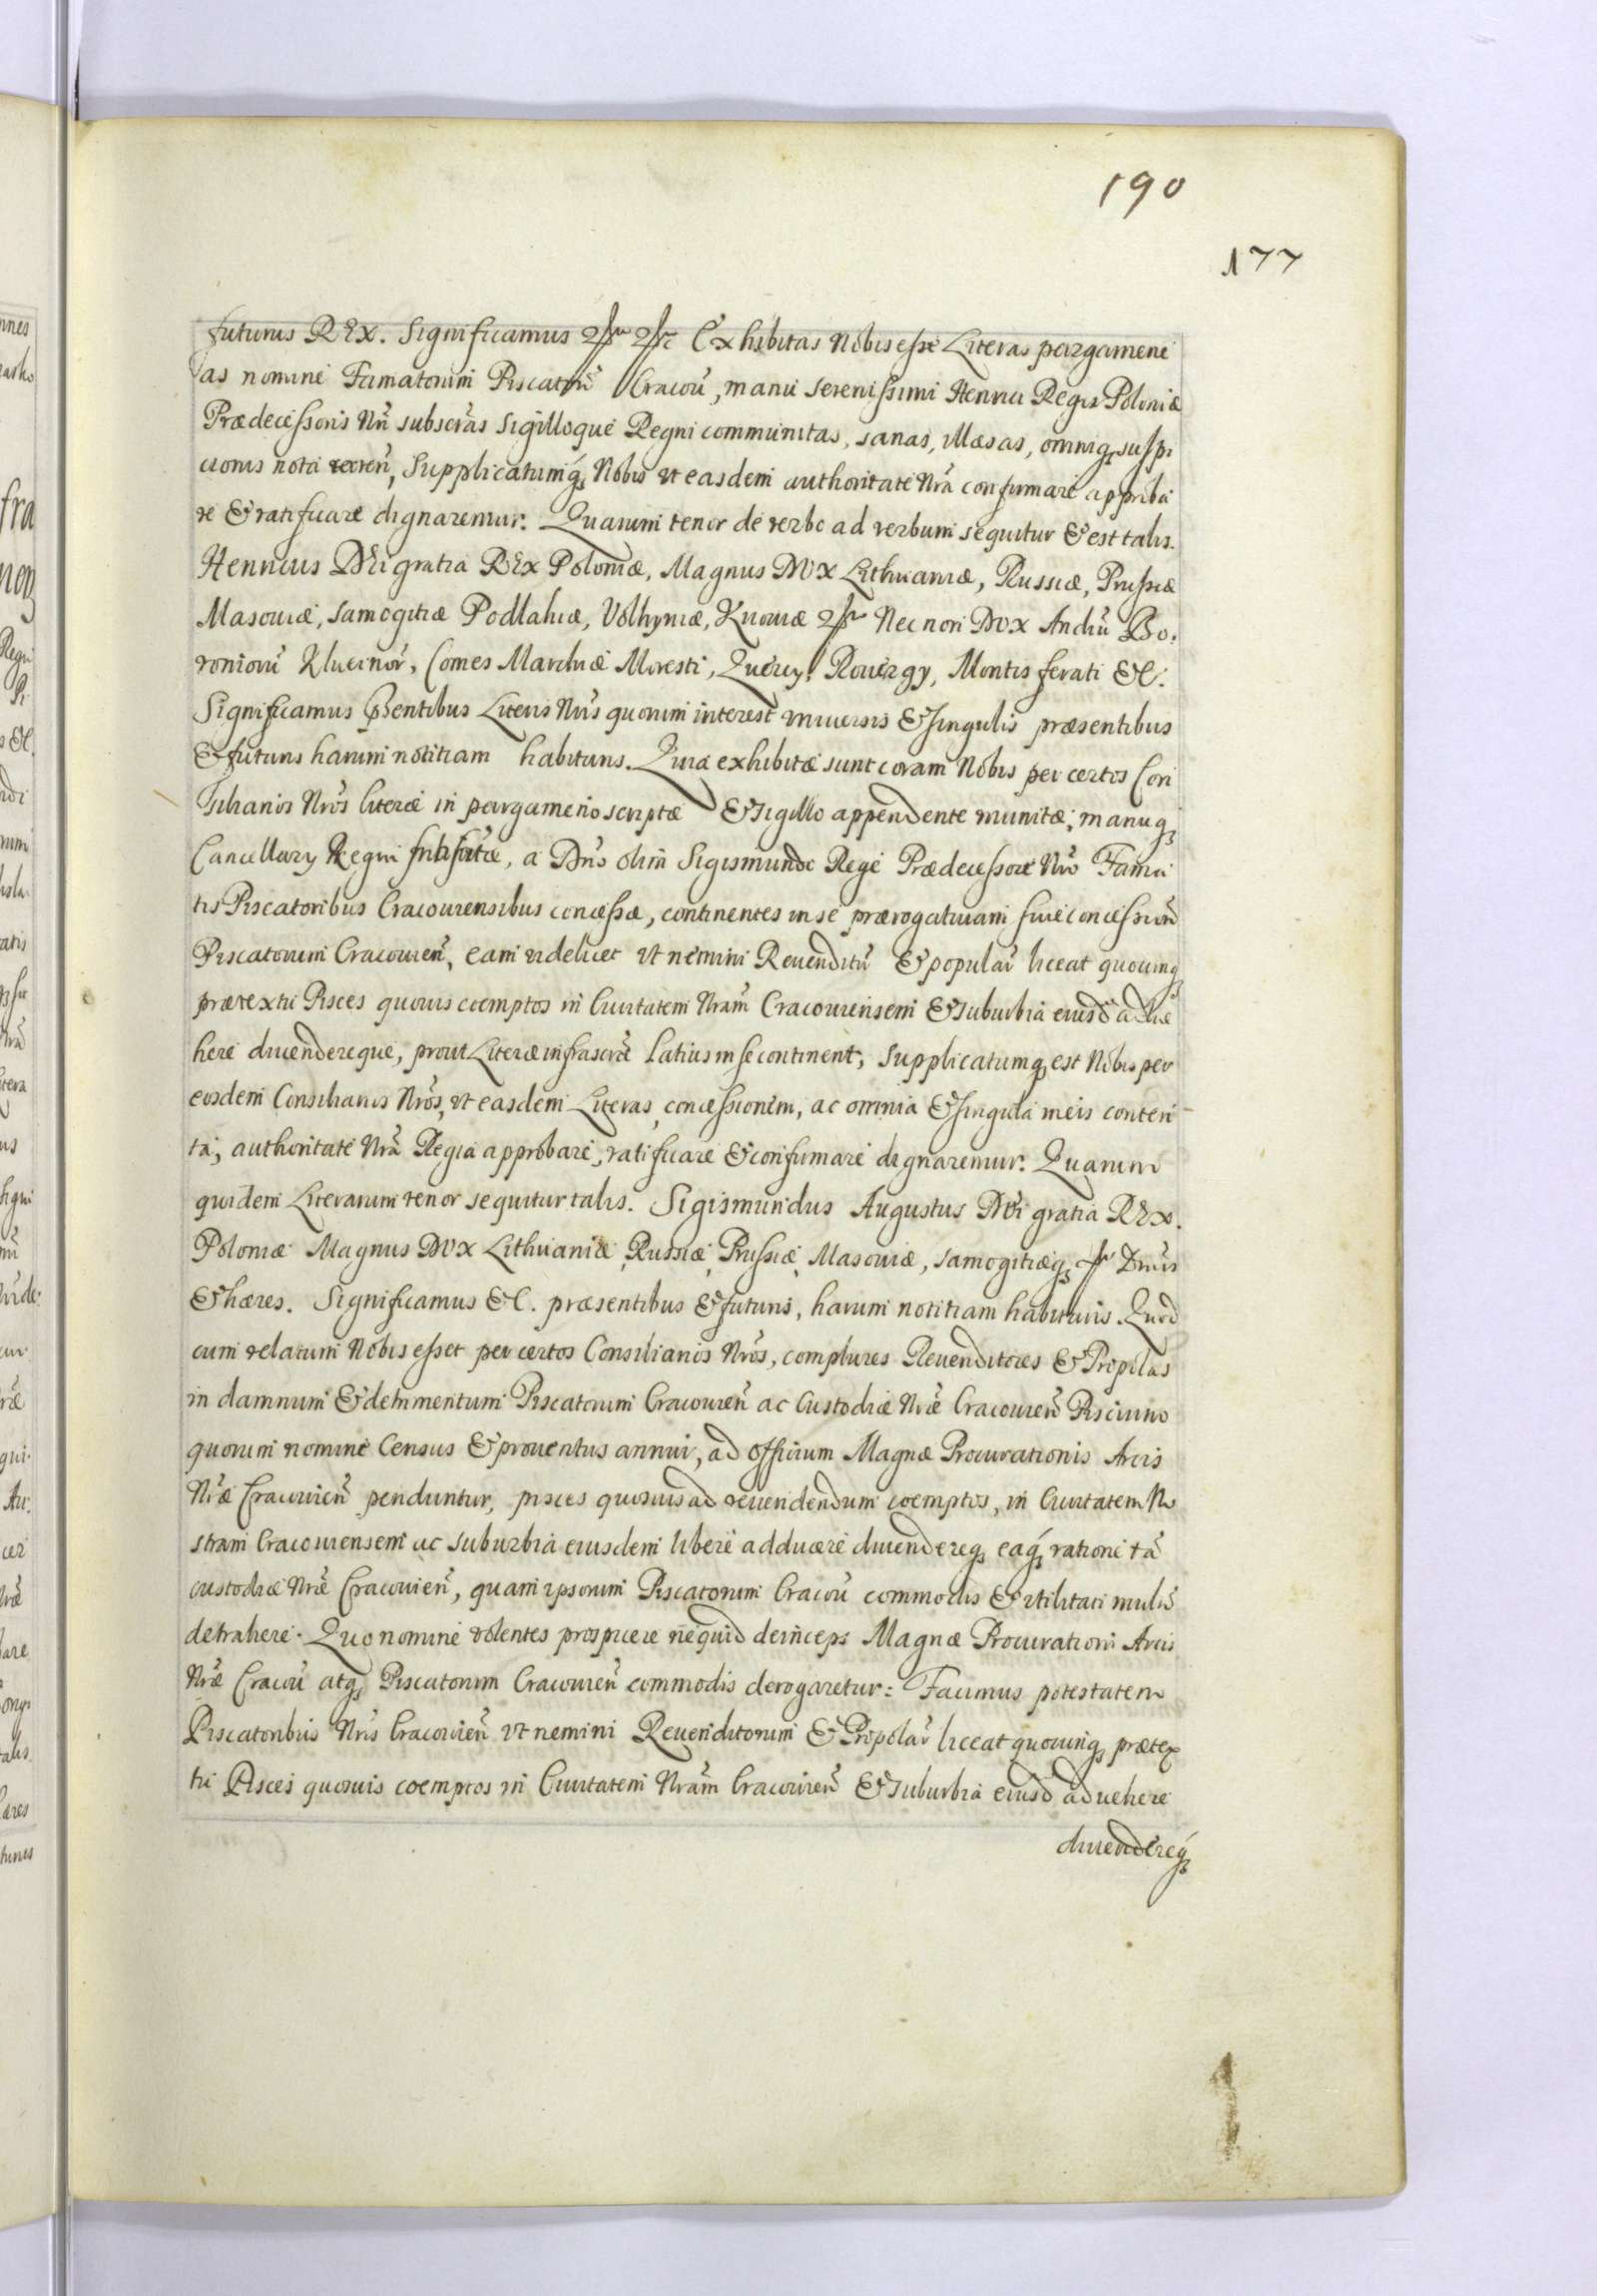 190
177
futurus REX. Significamus Exhibitas Nobis esse Literas pargamene
as nomine Famatorum Piscator̃ Cracou̅, manu serenissimi Henrici Regis Poloniæ
Prædecessoris Nr̃i subscr̃as Sigilloque Regni communitas, sanas, illæsas, omniq; suspi
cionis nota caren̅, Supplicatumq́; Nobis vt easdem authoritate Nr̃a confirmare approba
re & ratificare dignaremur. Quarum tenor de verbo ad verbum sequitur & est talis.
Henricus DEi gratia REX Poloniæ, Magnus DUX Lithuaniæ, Russiæ, Prussiæ
Masouiæ, Samogitiæ Podlahiæ, Volhyniæ, Kiiouiæ Nec non DUX Andiu̅ Bo.
roniorũ Aluernor̃, Comes Marchiæ Moresti, Quercy, Rouergy, Montis ferati &c.
Significamus p̃sentibus Literis Nr̃is quorum interest vniuersis & singulis præsentibus
& futuris harum notitiam habituris. Quia exhibitæ sunt coram Nobis per certos Con
siliarios Nr̃os literæ in pargameno scriptæ & sigillo appendente munitæ, manuq;
Cancellary Regni subscriptæ, a Diuo olim Sigismundo Rege Prædecessore Nr̃o Fama
tis Piscatoribus Cracouiensibus concessæ, continentes in se prærogatiuam siue concession̅
Piscatorum Cracouien̅, eam videlicet vt nemini Reuenditor̃ & popular̃ liceat quouinq;
prætextu Pisces quouis coemptos in Ciuitatem Nr̃am Cracouiensem & suburbia eiusd̃ adue
here diuendereque, prout Literæ infrascr̃æ latius in se continent; supplicatumq; est Nobis per
eosdem Consiliarios Nr̃os, vt easdem Literas, concessionem, ac omnia & singula in eis conten
ta, authoritate Nr̃a Regia approbare, ratificare & confirmare dignaremur. Quarum
quidem Literarum tenor sequitur talis. Sigismundus Augustus DEi gratia REX.
Poloniæ Magnus DUX Lithuaniæ, Russiæ, Prussiæ, Masouiæ, Samogitiæq; Dnũs
& hæres. Significamus &c. præsentibus & futuris, harum notitiam habituris. Quod
cum relatum Nobis esset per certos Consiliarios Nr̃os, complures Reuenditores & Propolas
in damnum & detrimentum Piscatorum Cracouien̅ ac Custodiæ Nr̃æ Cracouien̅ Pisciumo
quorum nomine Census & prouentus annui, ad officium Magnæ Procurationis Arcis
Nr̃æ Cracouien̅ penduntur, pisces quosuis ad reuendendum coemptos, in Ciuitatem No
stram Cracouiensem ac suburbia eiusdem libere adducere diuendereq; eaq́; ratione tã
custodiæ Nr̃æ Cracouien̅, quam ipsorum Piscatorum Cracou̅ commodis & vtilitati multũ
detrahere. Quo nomine volentes prospicere nequid deinceps Magnæ Procurationi Arcis
Nr̃æ Cracou̅ atq; Piscatorum Cracouien̅ commodis derogaretur: Facimus potestatem
Piscatoribus Nr̃is Cracouien̅ vt nemini Reuenditorum & Propolar̃ liceat quouinq; prætex
tu Pisces quouis coemptos in Ciuitatem Nr̃am Cracouien̅ & suburbia eiusd̃ aduehere
diuendereq́;